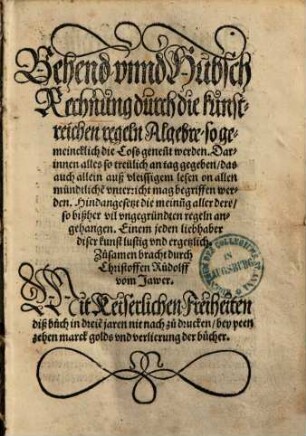 Behend vnnd Hubsch
Rechnung durch die kunst-
reichen regeln Algebre/so ge-
meincklich die Coss geneñt werden. Dar-
innen alles so treülich an tag gegeben/das
auch allein auß vleissigem lesen on allen
mündtlichẽ vnterricht mag begriffen wer-
den. Hindangesetzt die meinũg aller dere/
so bißher vil vngegründten regeln an-
gehangen. Einem jeden liebhaber
diser kunst lustig vnd ergetzlich
Zůsamen bracht durch
Christoffen Růdolff
vom Jawer.
Mit Keiserlichen Freiheiten
diß bůch in dreiẽ jaren nit nach zů drucken/bey peen
zehen marck golds vnd verlierung der bücher.
IN
AUGSBURG